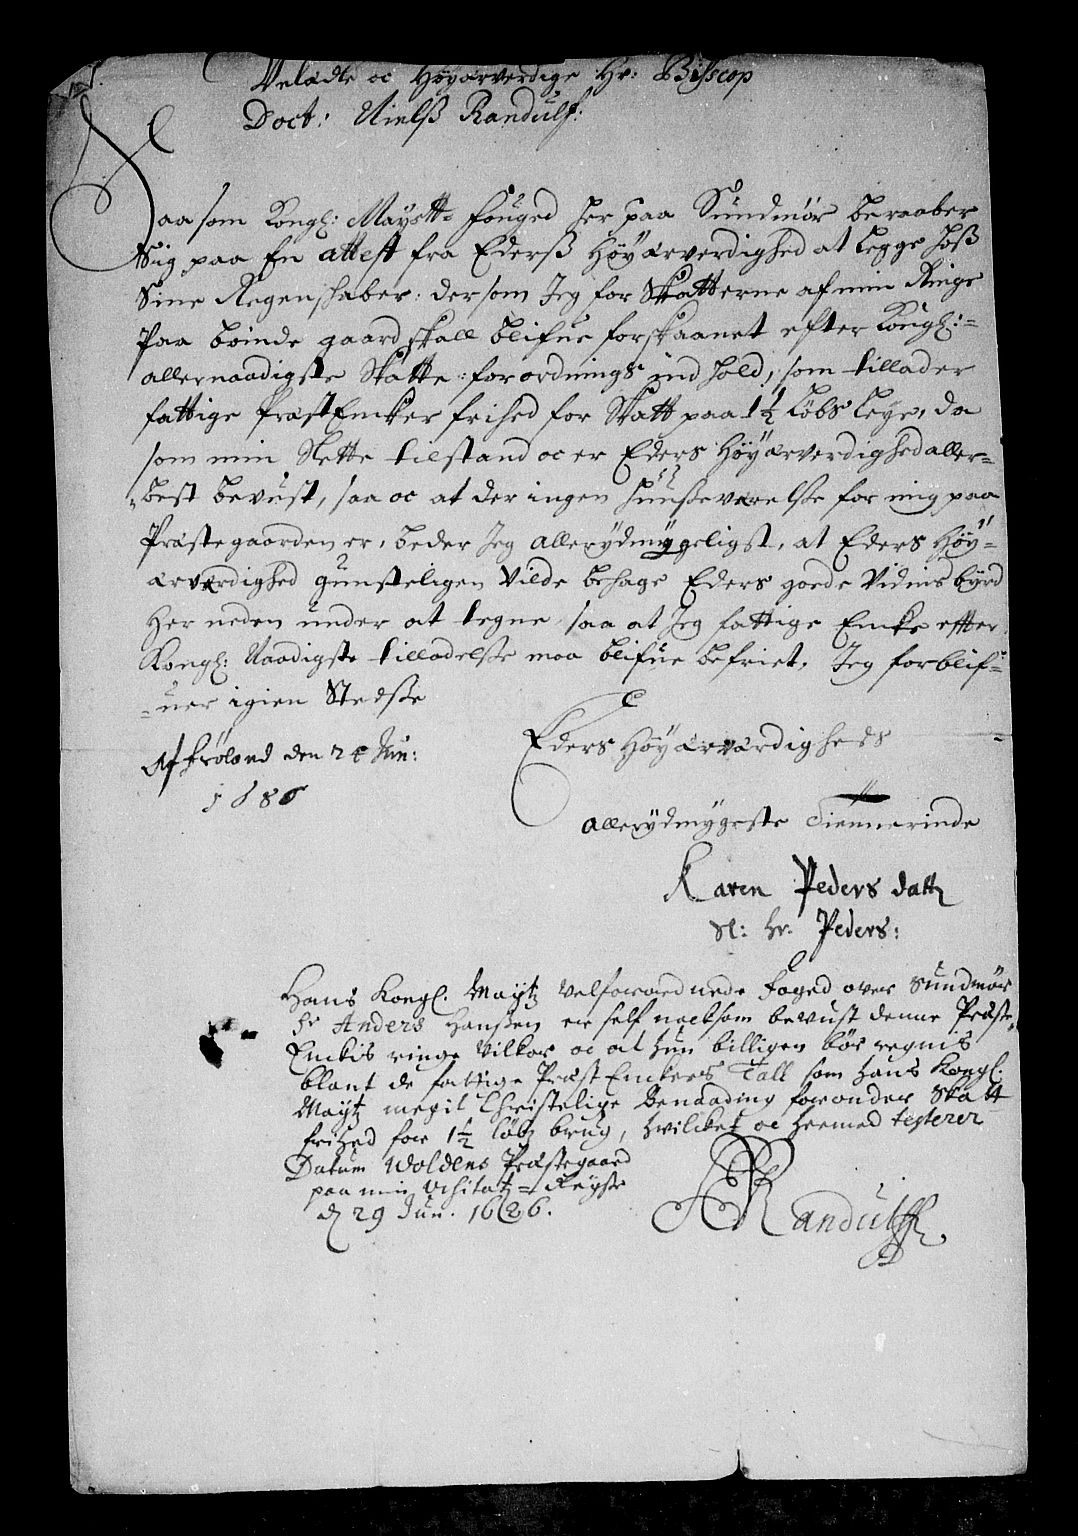 Velædle oc Høyærverdige Hr: Bisscop
Doct: Nielß Randulf:
Saasom Kongl: Mayestt= fouged her paa Sundmør beraaber
Sig paa En attest fra Ederß Høyærverdighed at legge hoß
Sine Regenskaber: dersom Jeg for Skatterne af min Ringe
Paa boinde gaard skall blifue forskaanet efter Kongl:=
allernaadigste Skatte: forordnings ind hold, som tillader
fattige PræstEncker frihed for Skatt paa 1½ Løbs Leye, da
som min Slette tilstand oc er Eders Høyærverdighed aller=
=best bevust, saa oc at der ingen huusseværelse for mig paa
Præstegaarden er, beder Jeg allerydmygeligst, at Eders Høy=
ærværdighed gunsteligen Vilde behage Eders goede Vidnisbyrd
Her neden under at tegne, saa at Jeg fattige Encke effter
Kongl: Naadigste tilladelse maa blifue befriet, Jeg forblif=
=uer igien Stedsse
Eders Høyærværdigheds
Af frøland den 24 Jun:
1686
allerydmygeste Tiennerinde
Karen Peders datt
Sl: hr. Peders:
Hans Kongl. Maytz velforordnede foged over Sundmør
hr Anders Hanssen er self nocksom bevust denne Præste
Enckis ringe Vilkor oc at hun billigen bør regnis
blant de fattige PræstEnckers Tall som Hans Kongl.
Maytz megit Christelige Benaading forunder Skatt
frihed for 1½ løbz brug, hvilcket oc hermed testerer
Datum Woldens Præstegaard
paa min Visitatz= Reysse
d 29 Jun. 1686.
Randulff